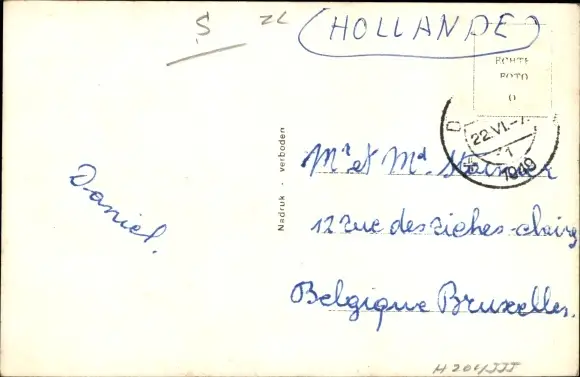 S ZL
HOLLANDE
ECHTE
FOTO
22.VI.
1949
Nadruk - verboden
Daniel.
Mr et Md.
12 rue des riches-claires
Belgique Bruxelles.
H 204/III